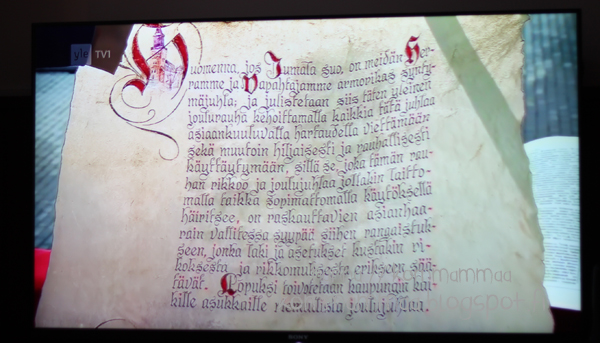 yle TV1
Huomenna, jos Jumala suo, on meidän Her-
ramme ja Vapahtajamme armorikas synty-
mäjuhla; ja julistetaan siis täten yleinen
joulurauha kehoittamalla kaikkia tätä juhlaa
asiaankuuluvalla hartaudella viettämään
sekä muutoin hiljaisesti ja rauhallisesti
käyttäytymään, sillä se, joka tämän rau-
han rikkoo ja joulujuhlaa jollakin laitto-
malla taikka sopimattomalla käytöksellä
häiritsee, on raskauttavien asianhaa-
rain vallitessa syypää siihen rangaistuk-
seen, jonka laki ja asetukset kustakin ri-
koksesta ja rikkomuksesta erikseen sää-
tävät. Lopuksi toivotetaan kaupungin kai-
kille asukkaille riemullista joulujuhlaa.
SONY